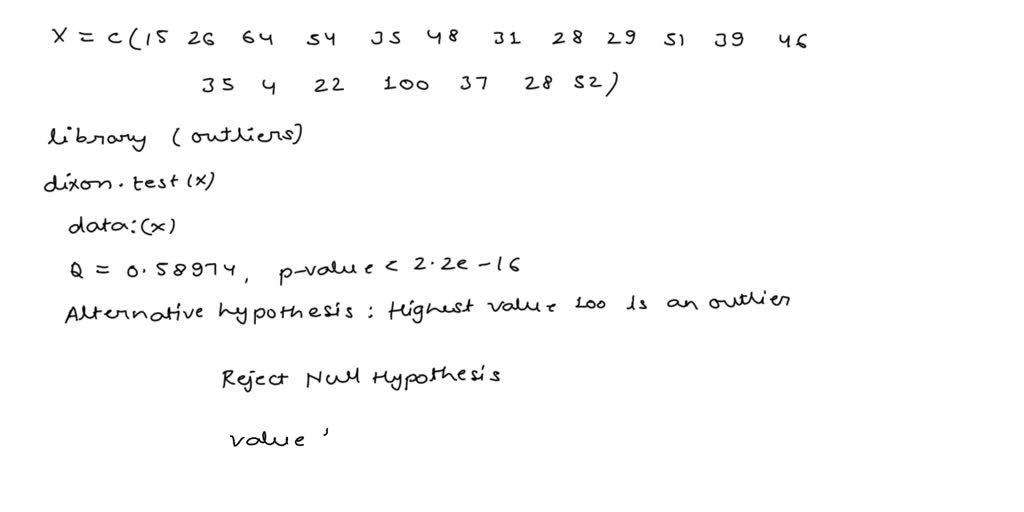 X = c(15 26 64 54 35 48 31 28 29 51 39 46
35 4 22 100 37 28 52)
library (outliers)
dixon.test(x)
data:(x)
Q = 0.58974, p-value < 2.2e-16
Alternative hypothesis : Highest value 100 is an outlier
Reject Null Hypothesis
value '